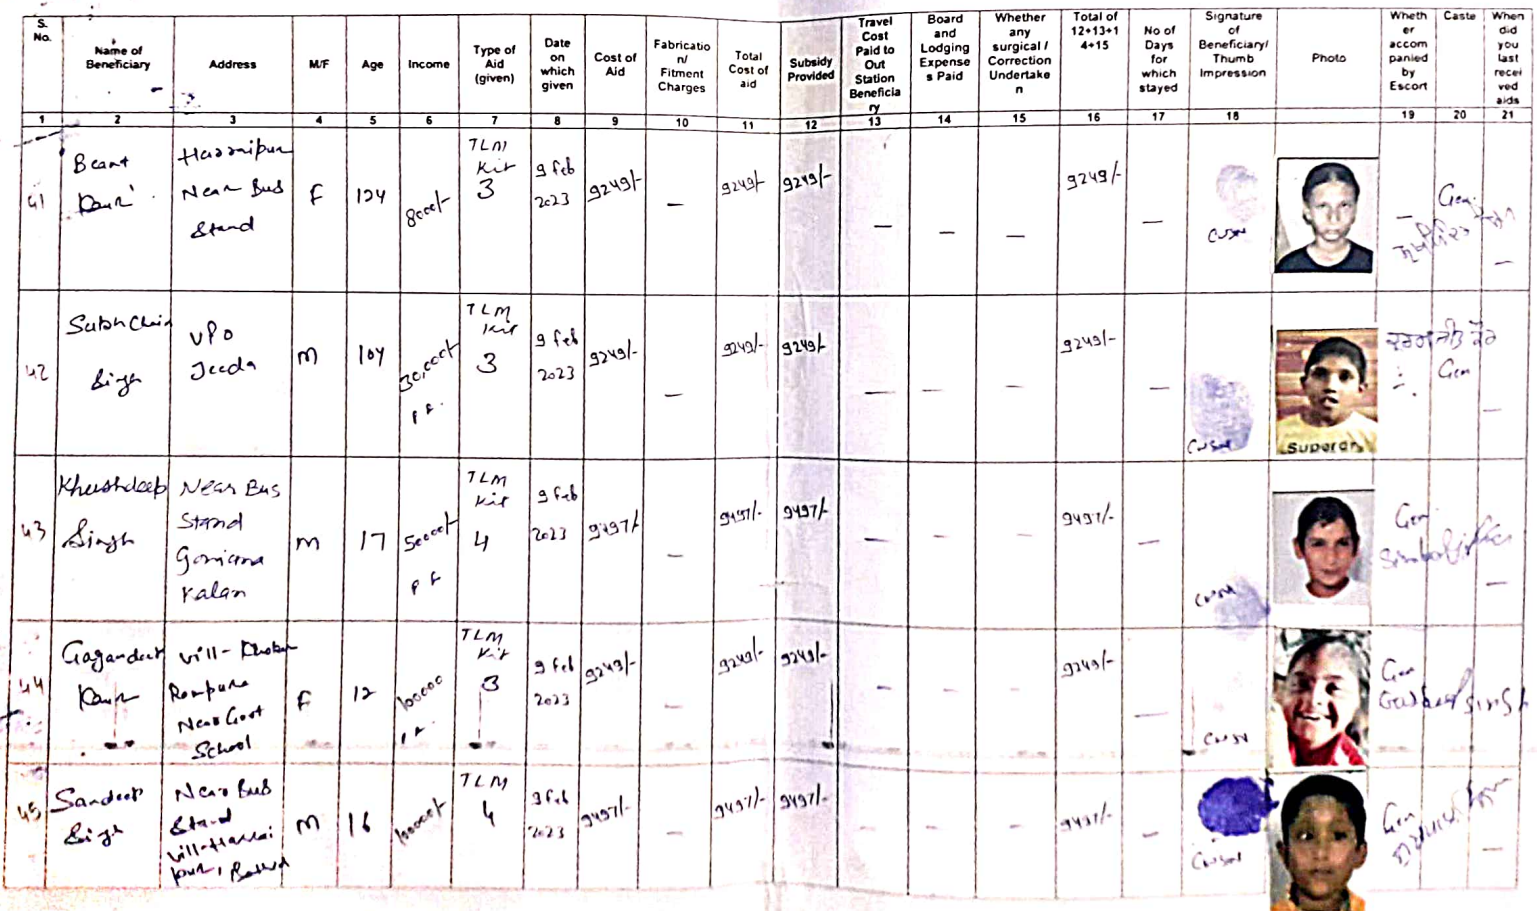 S. No.
Name of Beneficiary
Address
M/F
Age
Income
Type of Aid (given)
Date on which given
Cost of Aid
Fabricatio n/ Fitment Charges
Total Cost of aid
Subsidy Provided
Travel Cost Paid to Out Station Beneficia ry
Board and Lodging Expense s Paid
Whether any surgical / Correction Undertake n
Total of 12+13+1 4+15
No of Days for which stayed
Signature of Beneficiary/ Thumb Impression
Photo
Wheth er accom panied by Escort
Caste
When did you last recei ved aids
1 2 3 4 5 6 7 8 9 10 11 12 13 14 15 16 17 18 19 20 21
41 Beant Kaur Near Bus Stand F 8000/- TLM Kit 3 9 Feb 2023 9249/- — 9249/- 9249/- — — — 9249/- — CWSN — Gen —
42 Singh VPO Jeeda M 30,000/- TLM Kit 3 9 Feb 2023 9249/- — 9249/- 9249/- — — — 9249/- — CWSN Gen —
Superdry
43 Khushdeep Singh Near Bus Stand Goniana Kalan M 17 50000/- TLM Kit 4 9 Feb 2023 9497/- — 9497/- 9497/- — — — 9497/- — CWSN Gen —
44 Gagandeep Kaur Vill- Rampura Near Govt School F 12 100000 TLM Kit 3 9 Feb 2023 9249/- — 9249/- 9249/- — — — 9249/- — CWSN Gen Singh
45 Sandeep Singh Near Bus Stand M 16 100000/- TLM 4 9 Feb 2023 9497/- — 9497/- 9497/- — — — 9497/- — CWSN Gen —